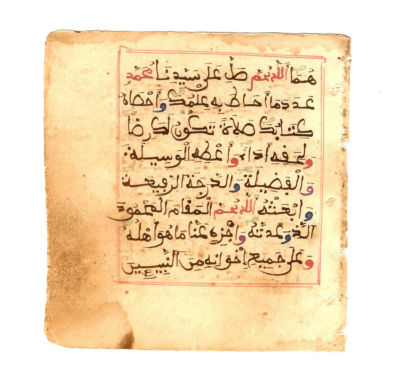 هما اللهم صل على سيدنا محمد
عدد ما احاط به علمك واحصاه
كتابك صلاة تكون لك رضا
ولحقه اداء واعطه الوسيلة
والفضيلة والدرجة الرفيعة
وابعثه اللهم المقام المحمود
الذي وعدته واجزه عنا ما هو اهله
وعلى جميع اخوانه من النبيين